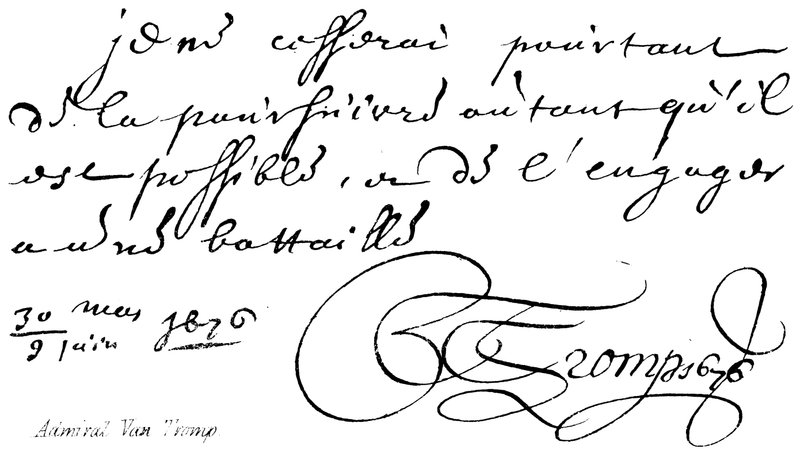 je ne cesserai pourtant
de la poursuivre autant qu'il
est possible, e de l'engager
a une battaille
30 mas 1676
9 juin
C Tromp 1676
Admiral Van Tromp.